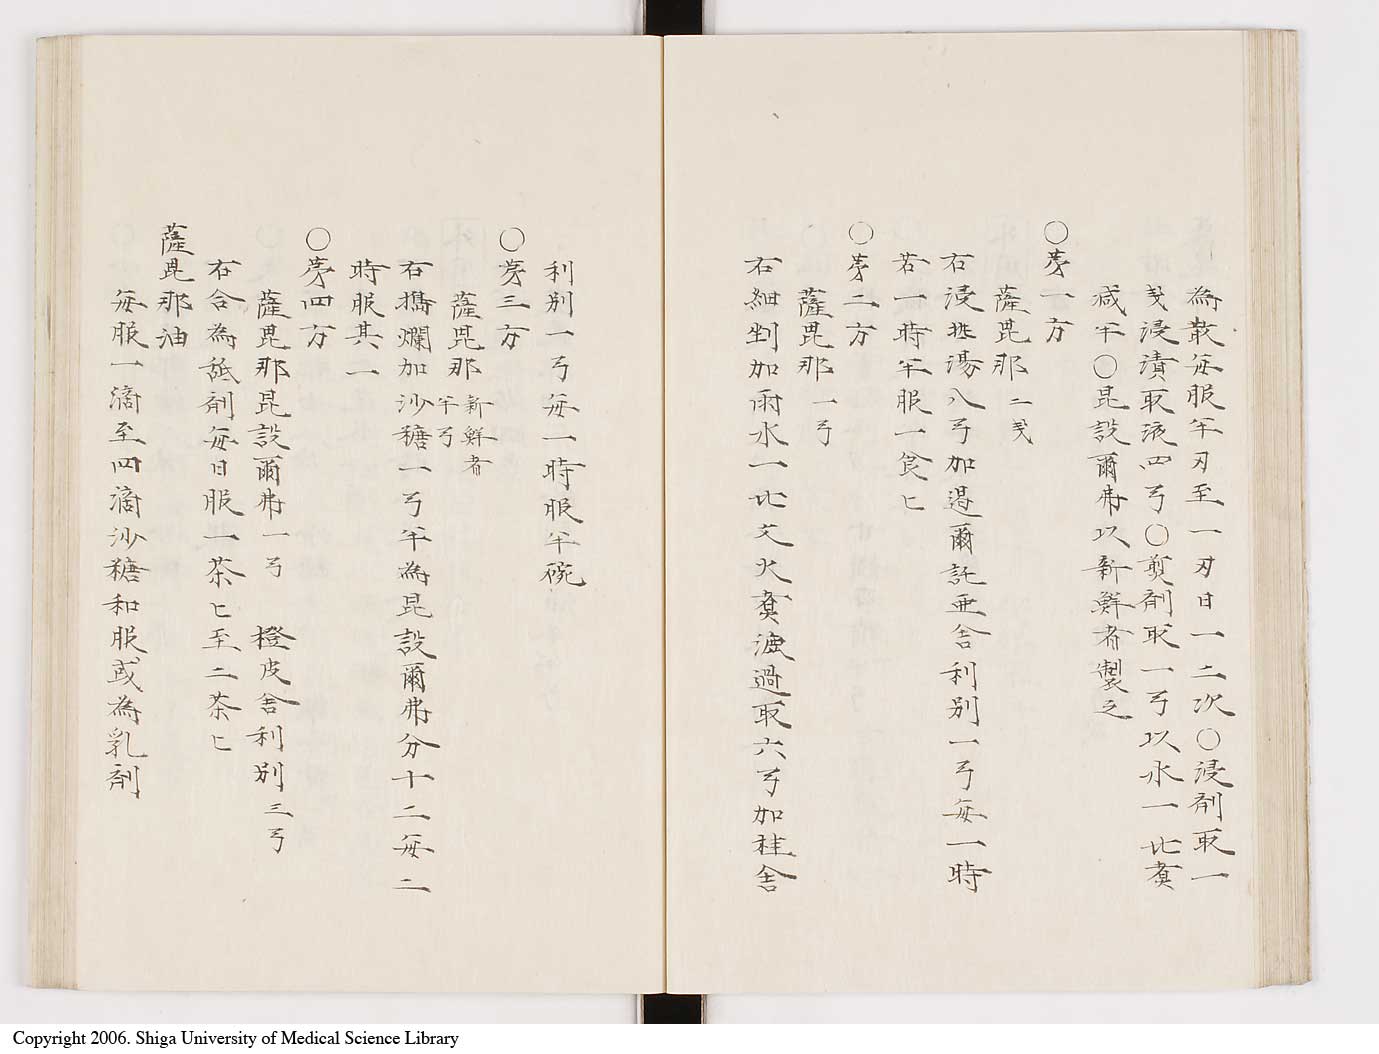 為散每服半刃至一刃日一二次〇浸剤取一
戔浸漬取液四弓〇煎剤取一弓以水一比煮
減半〇昆設爾弗以新鮮者製之
〇第一方
薩毘那二戔
右浸 湯八弓加遏爾託亜舎利別一弓每一時
若一時半服一食匕
〇第二方
薩毘那一弓
右細剉加雨水一比文火煮濾過取六弓加桂舎
利別一弓每一時服半碗
〇第三方
薩毘那 新鮮者 半弓
右擣爛加沙糖一弓半為昆設爾弗分十二每二
時服其一
〇第四方
薩毘那昆設爾弗一弓 橙皮舎利別三弓
右合為舐剤每日服一茶匕至二茶匕
薩毘那油
每服一滴至四滴沙糖和服或為乳剤
Copyright 2006. Shiga University of Medical Science Library